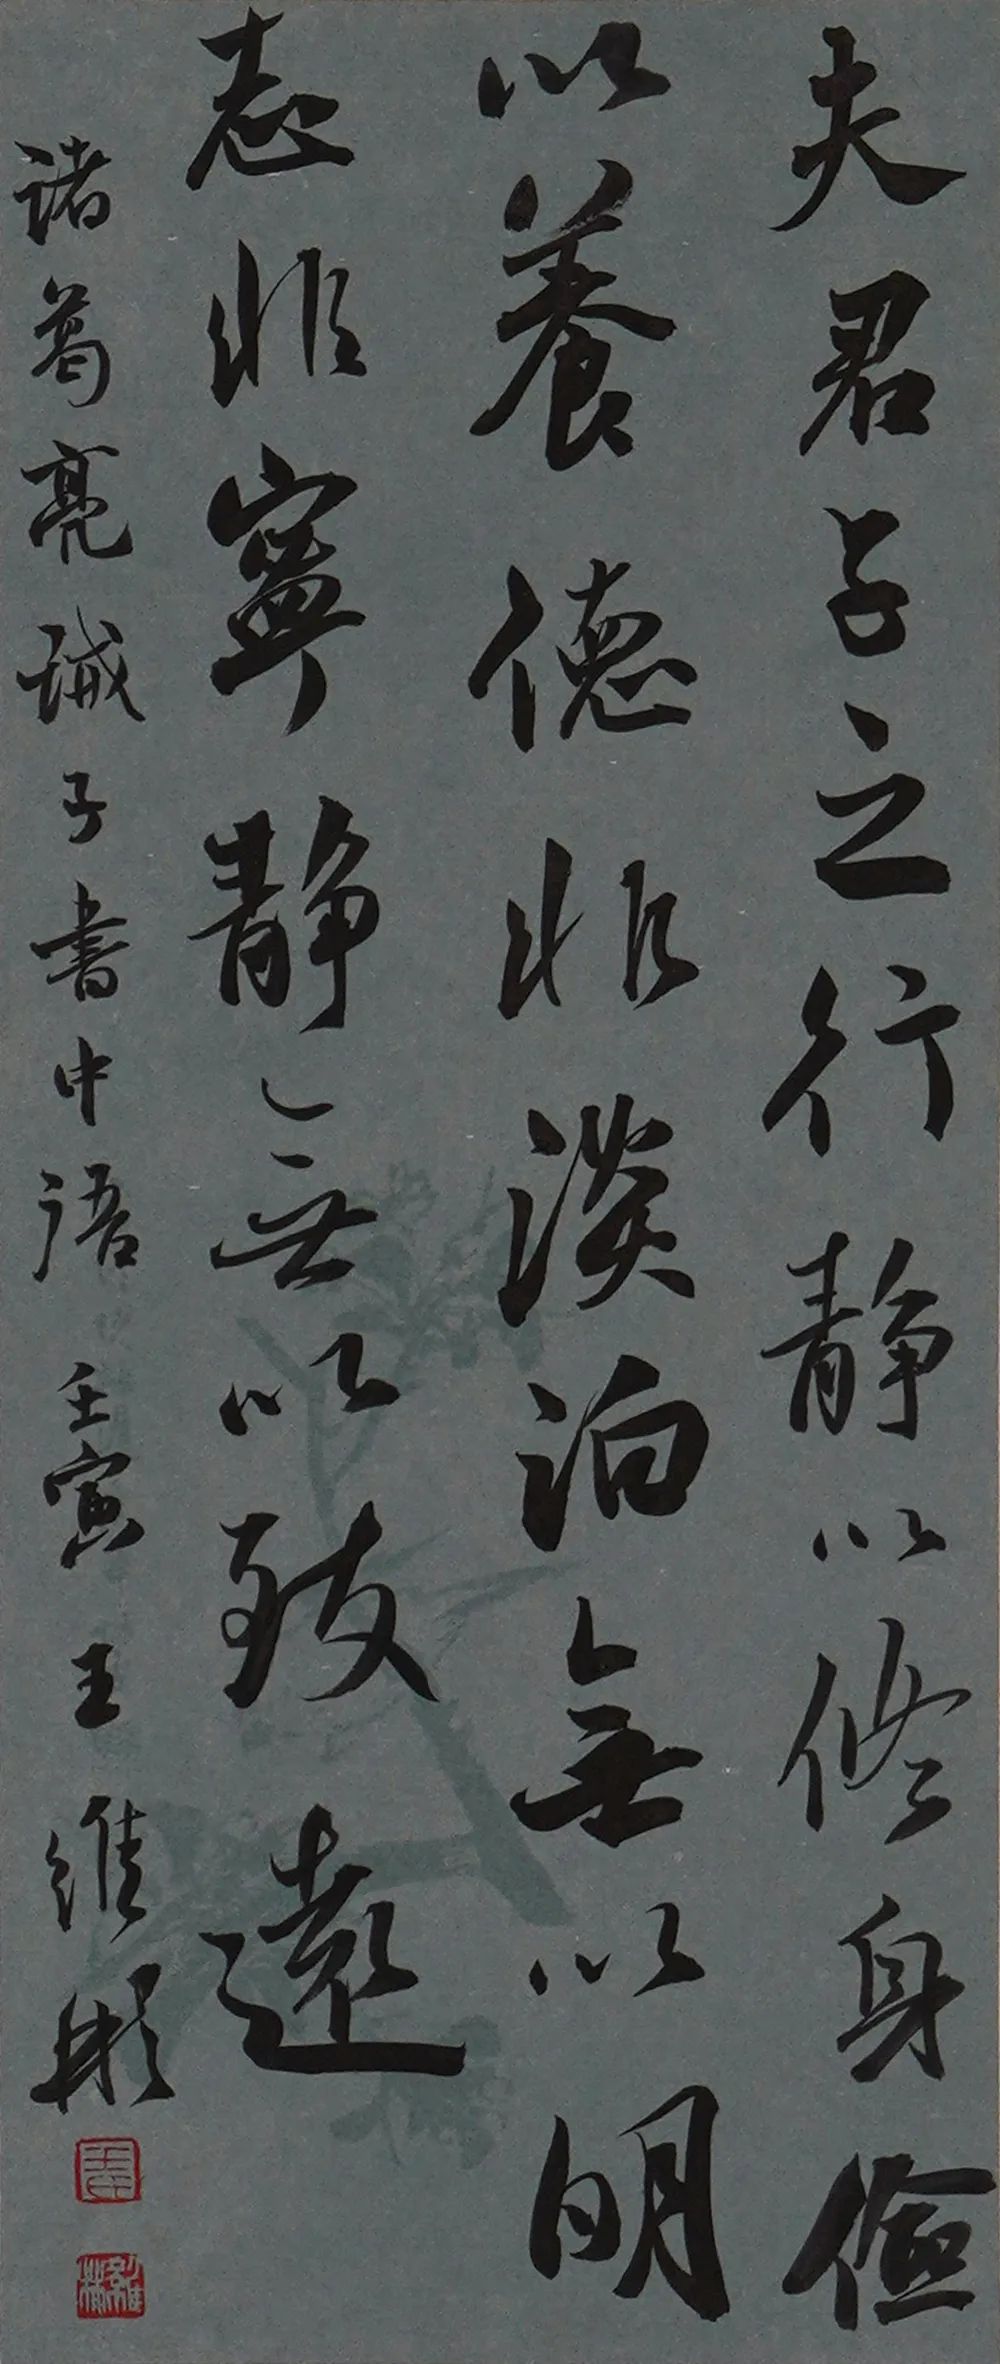 夫君子之行静以修身儉
以養德非淡泊無以明
志非寧静無以致遠
諸葛亮誡子書中語壬寅王維